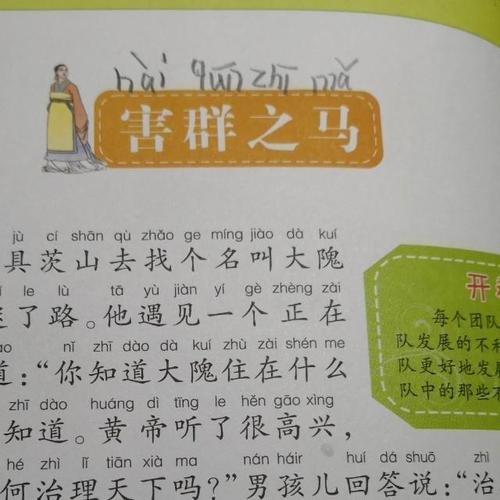 hài qún zhī mǎ
害群之马
jù cí shān qù zhǎo ge míng jiào dà kuí
具茨山去找个名叫大隗
le lù tā yù jiàn yí gè zhèng zài
了路。他遇见一个正在
nǐ zhī dào dà kuí zhù zài shén me
道：“你知道大隗住在什么
zhī dào huáng dì tīng le hěn gāo xìng
知道。黄帝听了很高兴，
hé zhì lǐ tiān xià ma nán háir huí dá shuō zhì
何治理天下吗？”男孩儿回答说：“治
开
每个团队
队发展的不利
队更好地发展
队中的那些不